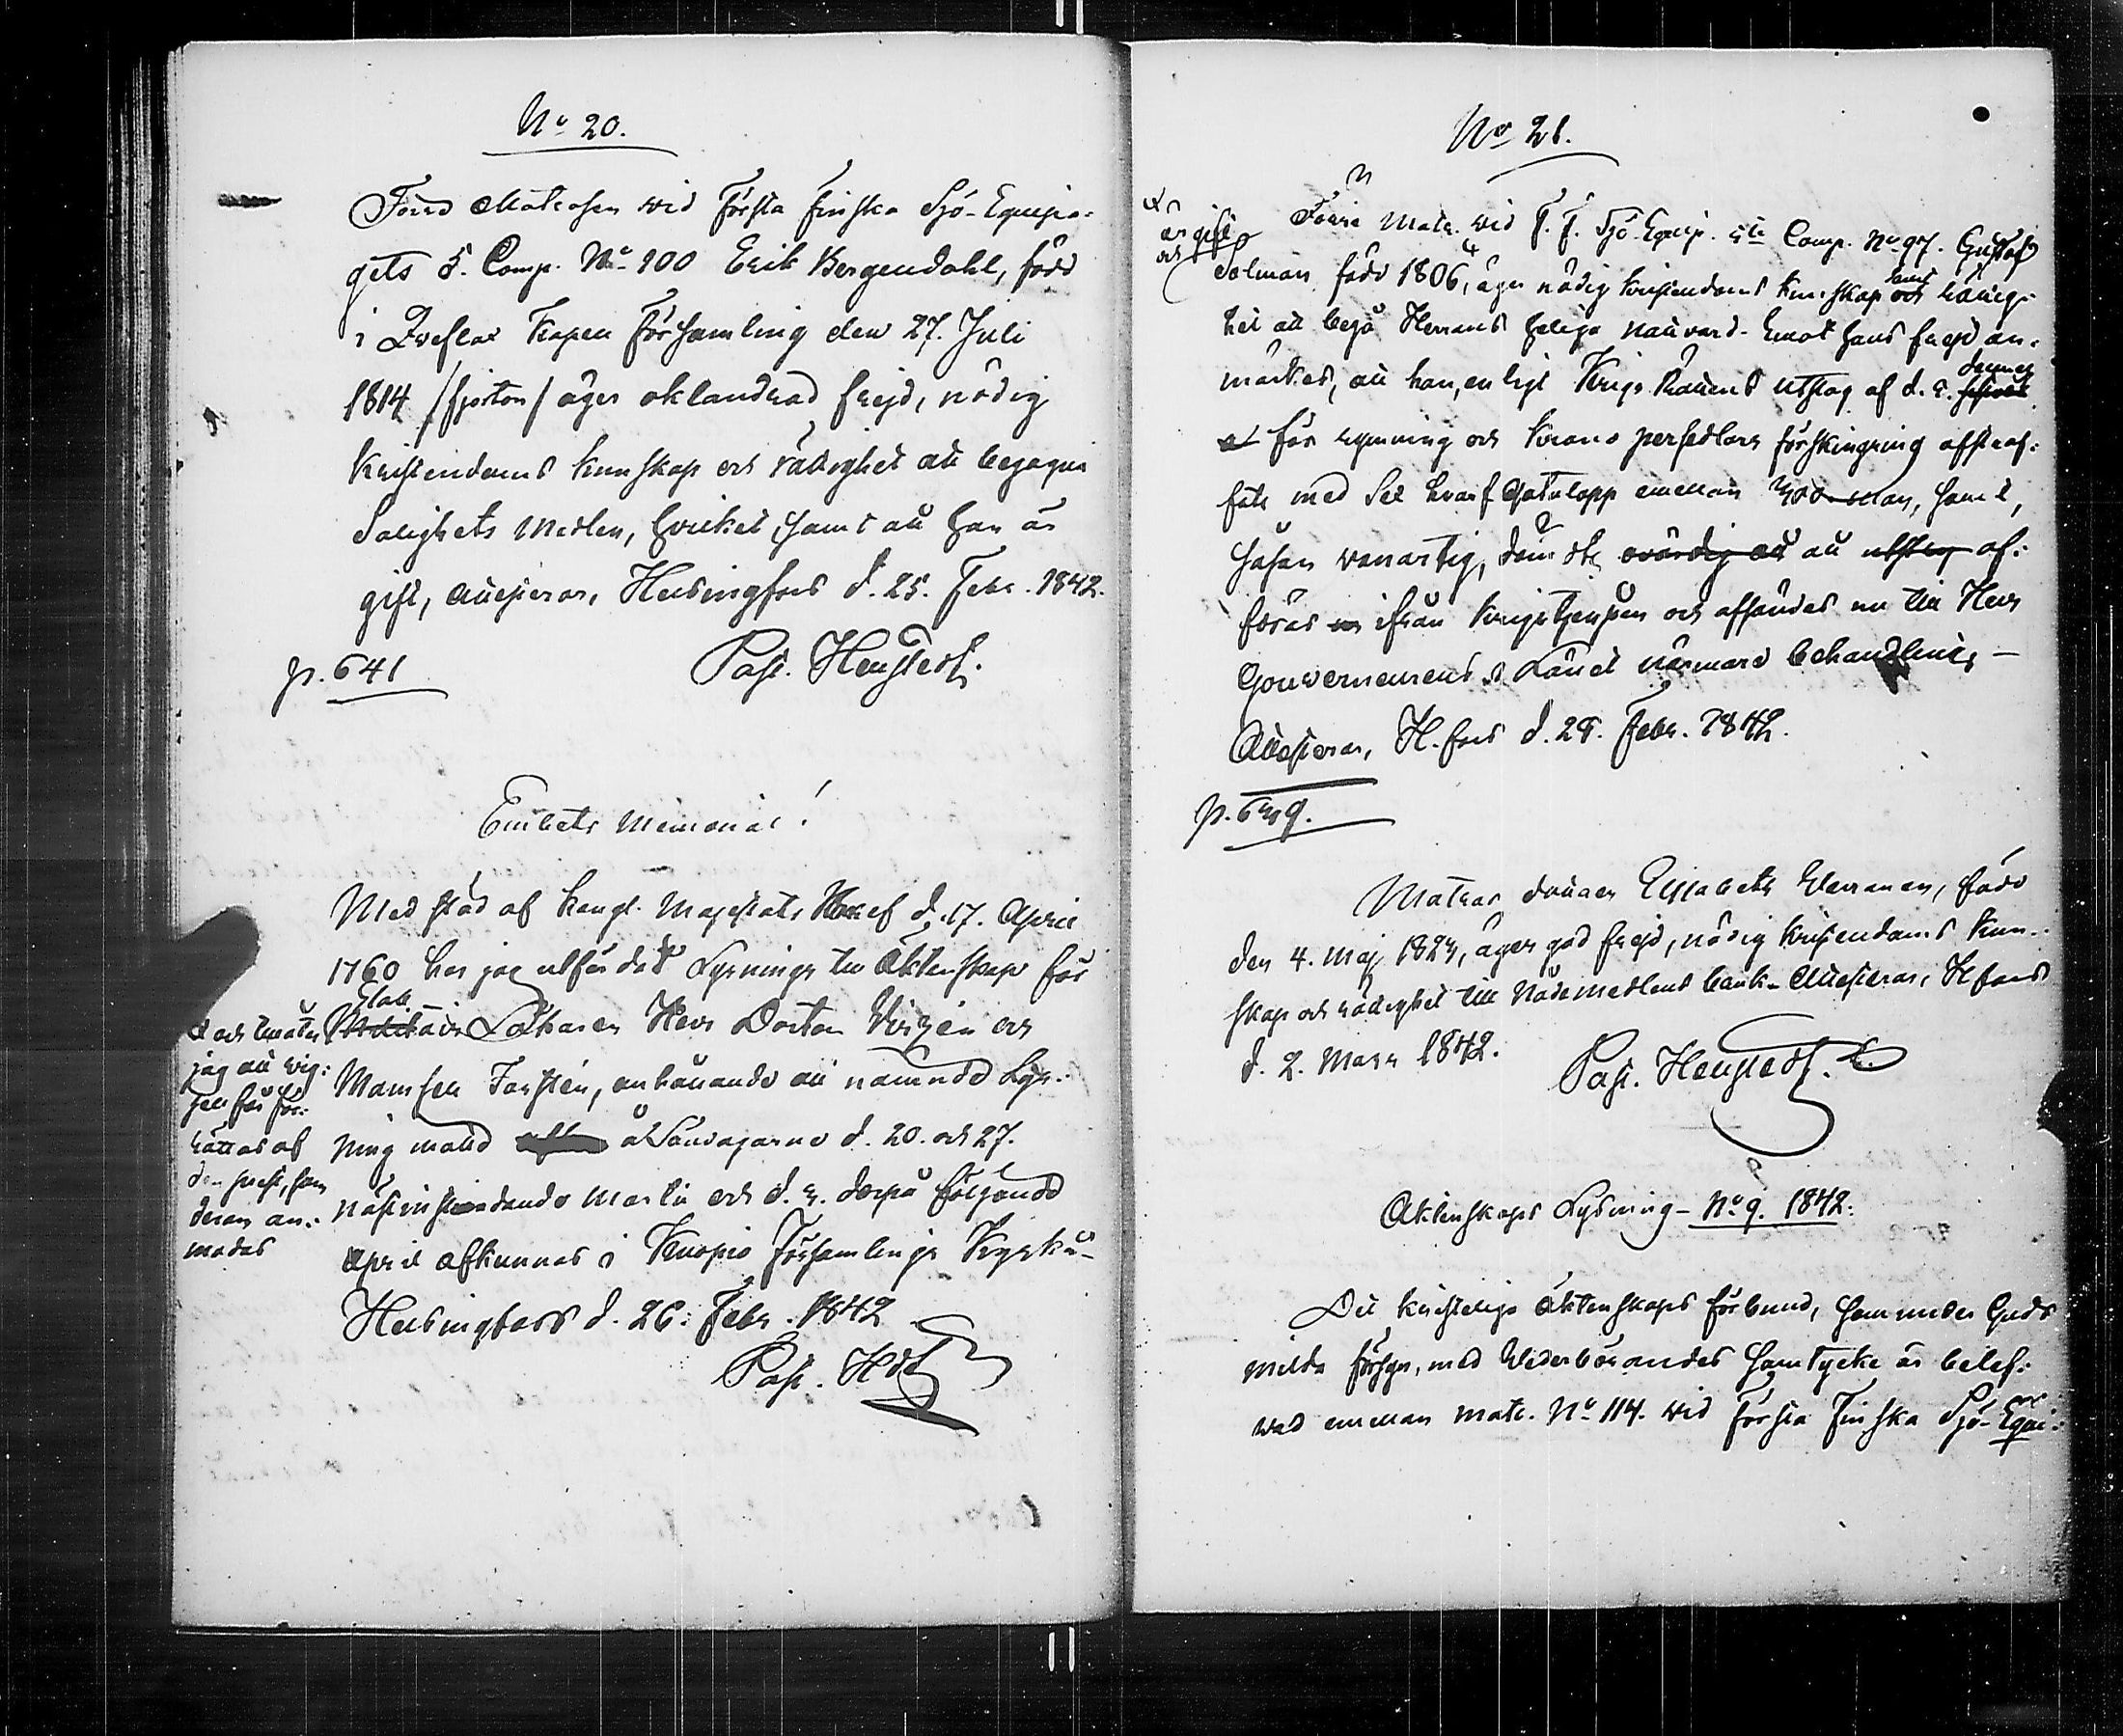 No 20.
Förre Matrosen wid Första Finska Sjö-Equipa-
gets 5. Comp. No 100 Erik Bergendahl, född
i Kapell Församling den 27. Juli
1814 /fjorton/ äger oklandrad frejd, nödig
Kristendoms kunskap och rättighet att begagna
Salighets Medlen, hvilket, samt att han är
gift, attesteras, Helsingfors d. 25. Febr. 1842.
Past. Hengstedt.
p. 641
Embets Memorial!
Med stöd af Kongl. Majestäts Bref d. 17. April
1760 har jag utfärdat Lysnings till Äktenskap för
Stab
Läkaren Herr Doctor Virzén och
Mamsell Forstén, anhållande att nämnde Lys-
ning måtte å Söndagarne d. 20. och 27.
nästinstundande Martii och d. 3. derpå följande
April afkunnas i Kuopio Församlings Kyrka-
Helsingfors d. 26. Febr. 1842
Past. Hdt
och tillåter
jag att wig-
seln får för-
rättas af
den prest, som
derom an-
modas
No 21.
Förre Matr. wid F. F. Sjö-Equip. 5te Comp. No 97. Gustaf
är gift
och
Solman född 1806, äger nödig kristendoms kunskap och rättig-
samt
het att begå Herrans heliga nattvard. Emot hans frejd an-
märkes, att han, enligt Krigs Rättens utslag af d. 5. dennes
för rymning och Krono persedlars förskingring afstraf-
fats med Sex hvarf Gatulopp emellan 300 man, samt,
såsom wanartig, dömdts ovärdig att att utslag af-
föras ifrån Krigstjensten och afsändes nu till Herr
Gouverneurens i Länet närmare behandling, -
Attesteras, H.fors d. 28. Febr. 1842.
p. 639.
Matros dottren Elisabeth Werranen, född
den 4. Maj 1823, äger god frejd, nödig kristendoms kun-
skap och rättighet till Nådemedlens bruk. Attesteras, H.fors
d. 2. Mars 1842.
Past. Hengstedt.
Äktenskaps Lysning - No 9. 1842.
Det kristeliga äktenskaps förbund, som under Guds
milda försyn, med Wederbörandes samtycke är belef-
wad emellan matr. No 114. wid Första Finska Sjö-Equi-